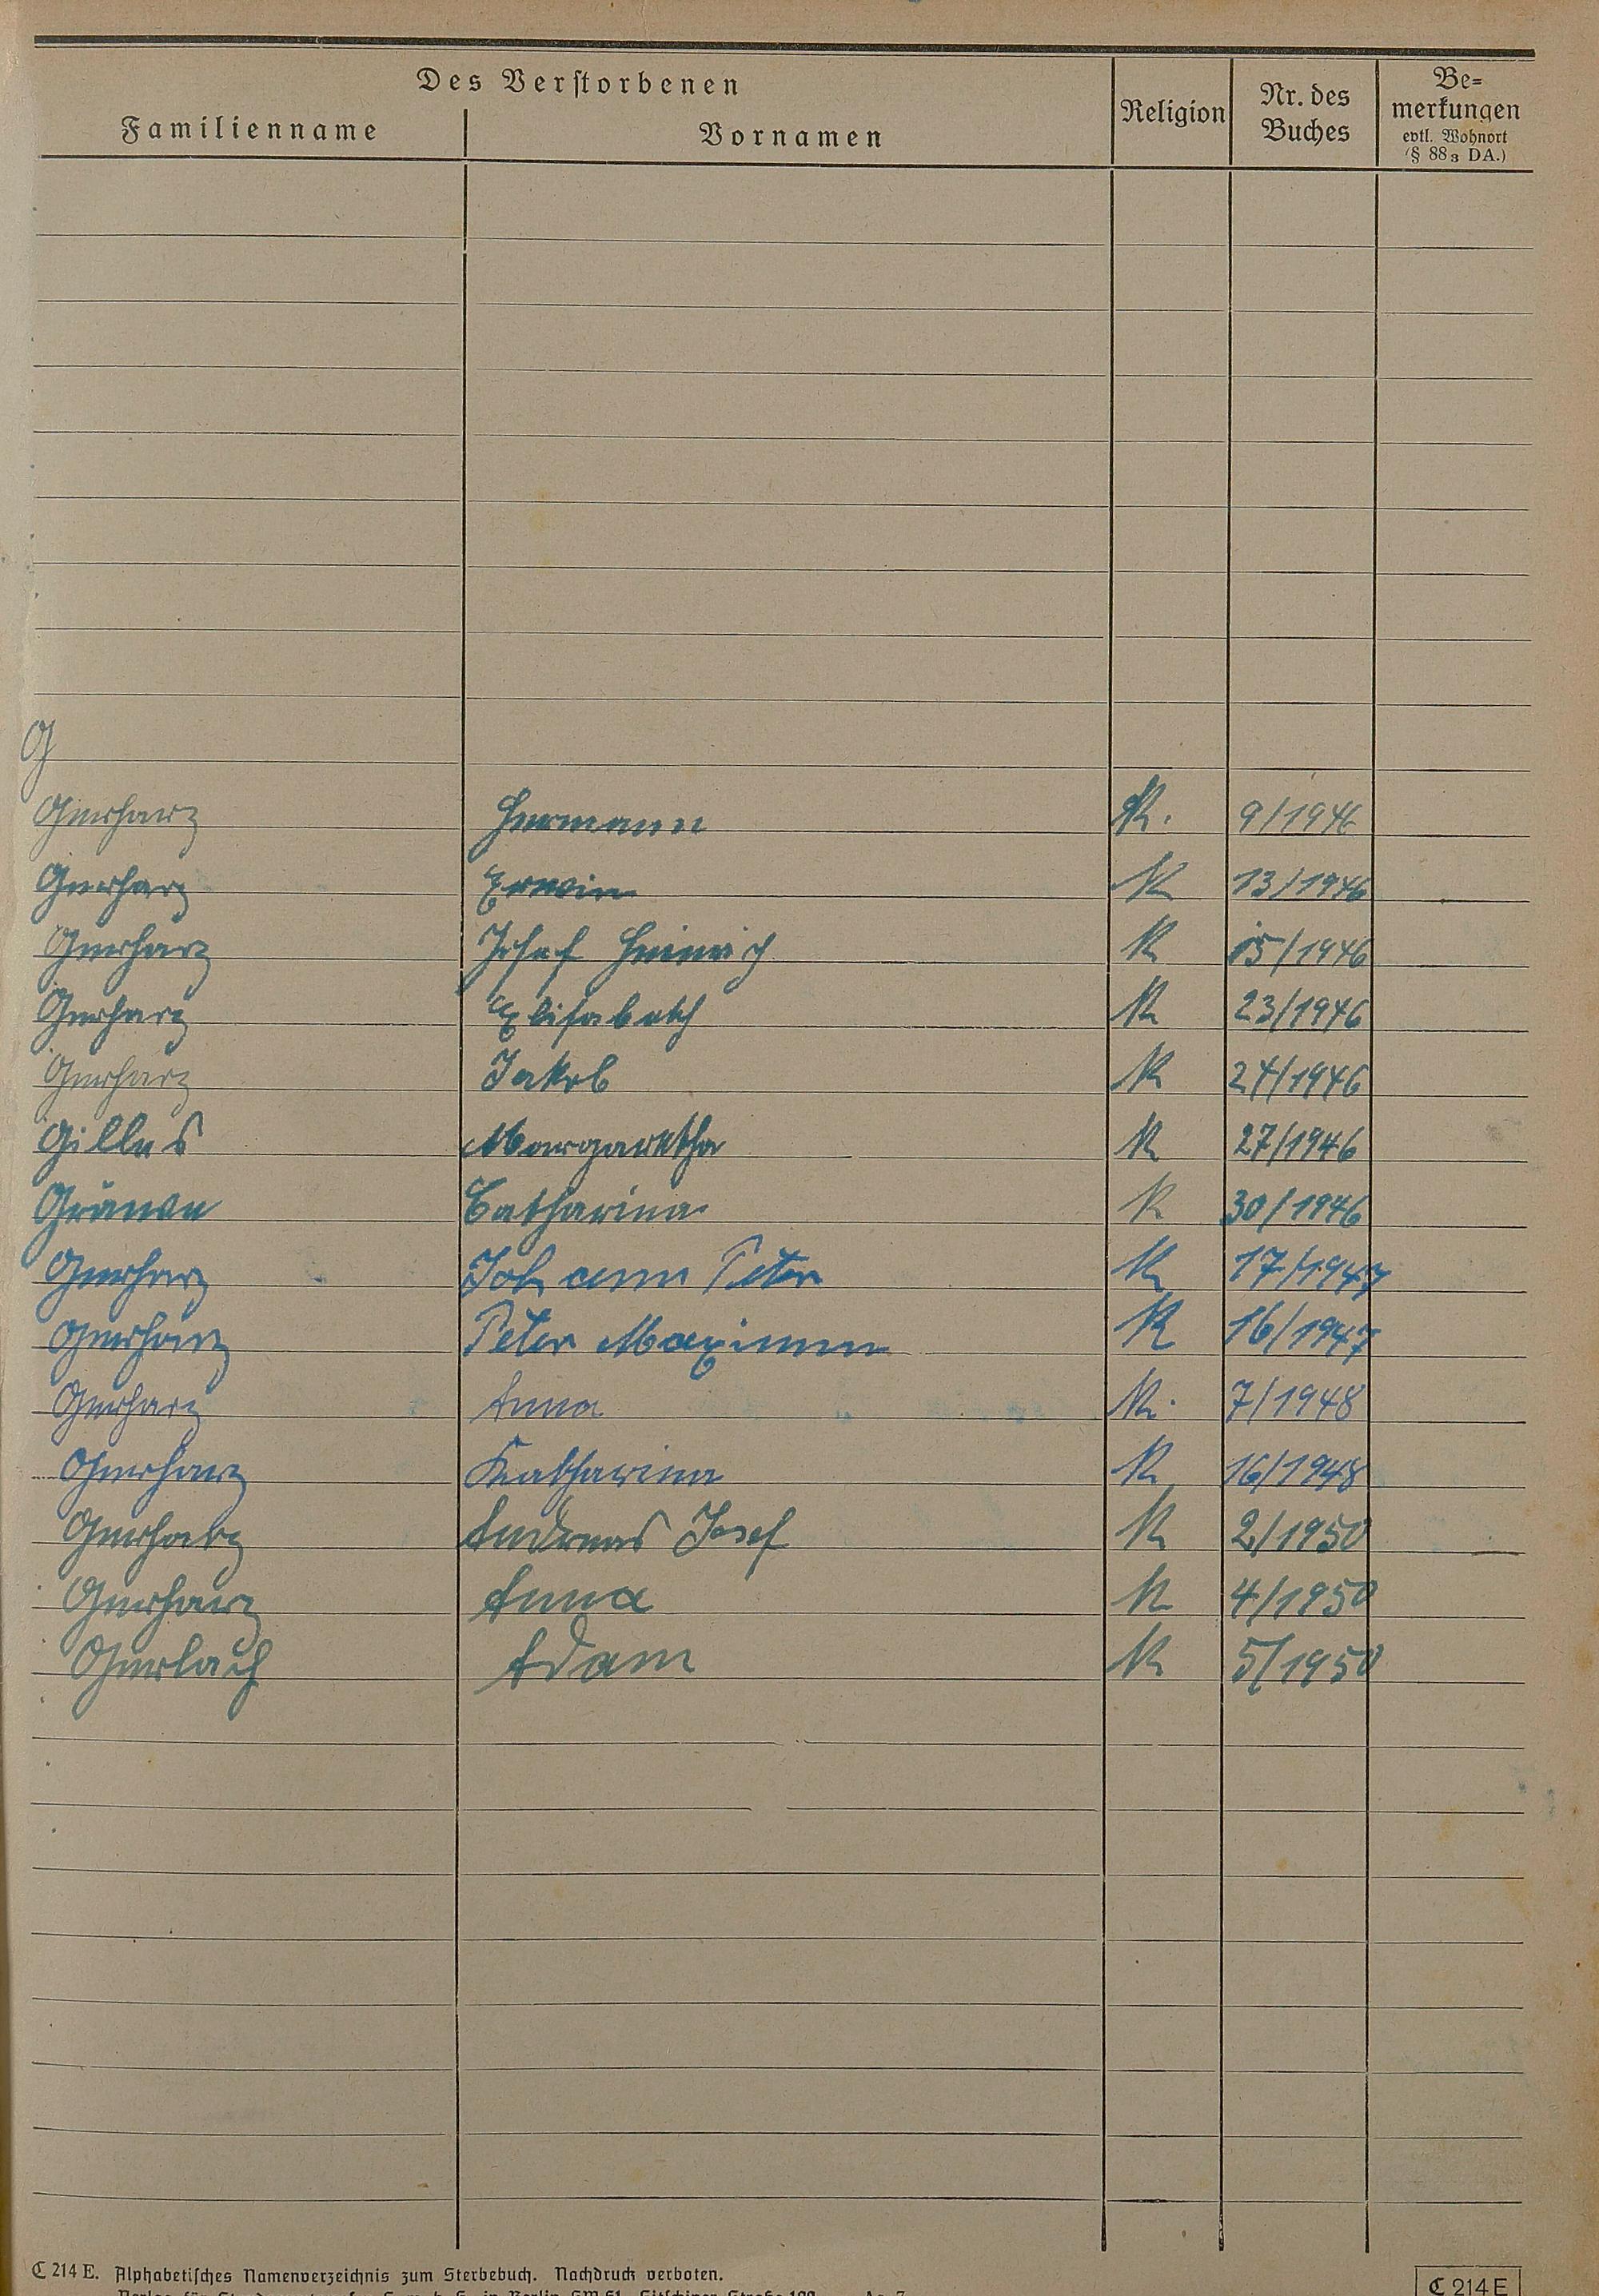 Des Verstorbenen
Familienname Vornamen Religion Nr. des Buches Be= merkungen evtl. Wohnort (§ 88₃ DA.)
G
Gerharz Hermann K. 9/1946
Gerharz Erwin K 13/1946
Gerharz Josef Heinrich K 15/1946
Gerharz Elisabeth K 23/1946
Gerharz Jakob K 24/1946
Gilles Margaretha K 27/1946
Catharina K 30/1946
Gerharz Johann Peter K 17/1947
Gerharz Peter K 16/1947
Gerharz Anna K. 7/1948
Gerharz Katharina K 16/1948
Gerharz Andreas Josef K 2/1950
Gerharz Anna K 4/1950
Gerlach Adam K 5/1950
C 214 E. Alphabetisches Namenverzeichnis zum Sterbebuch. Nachdruck verboten.
C 214 E